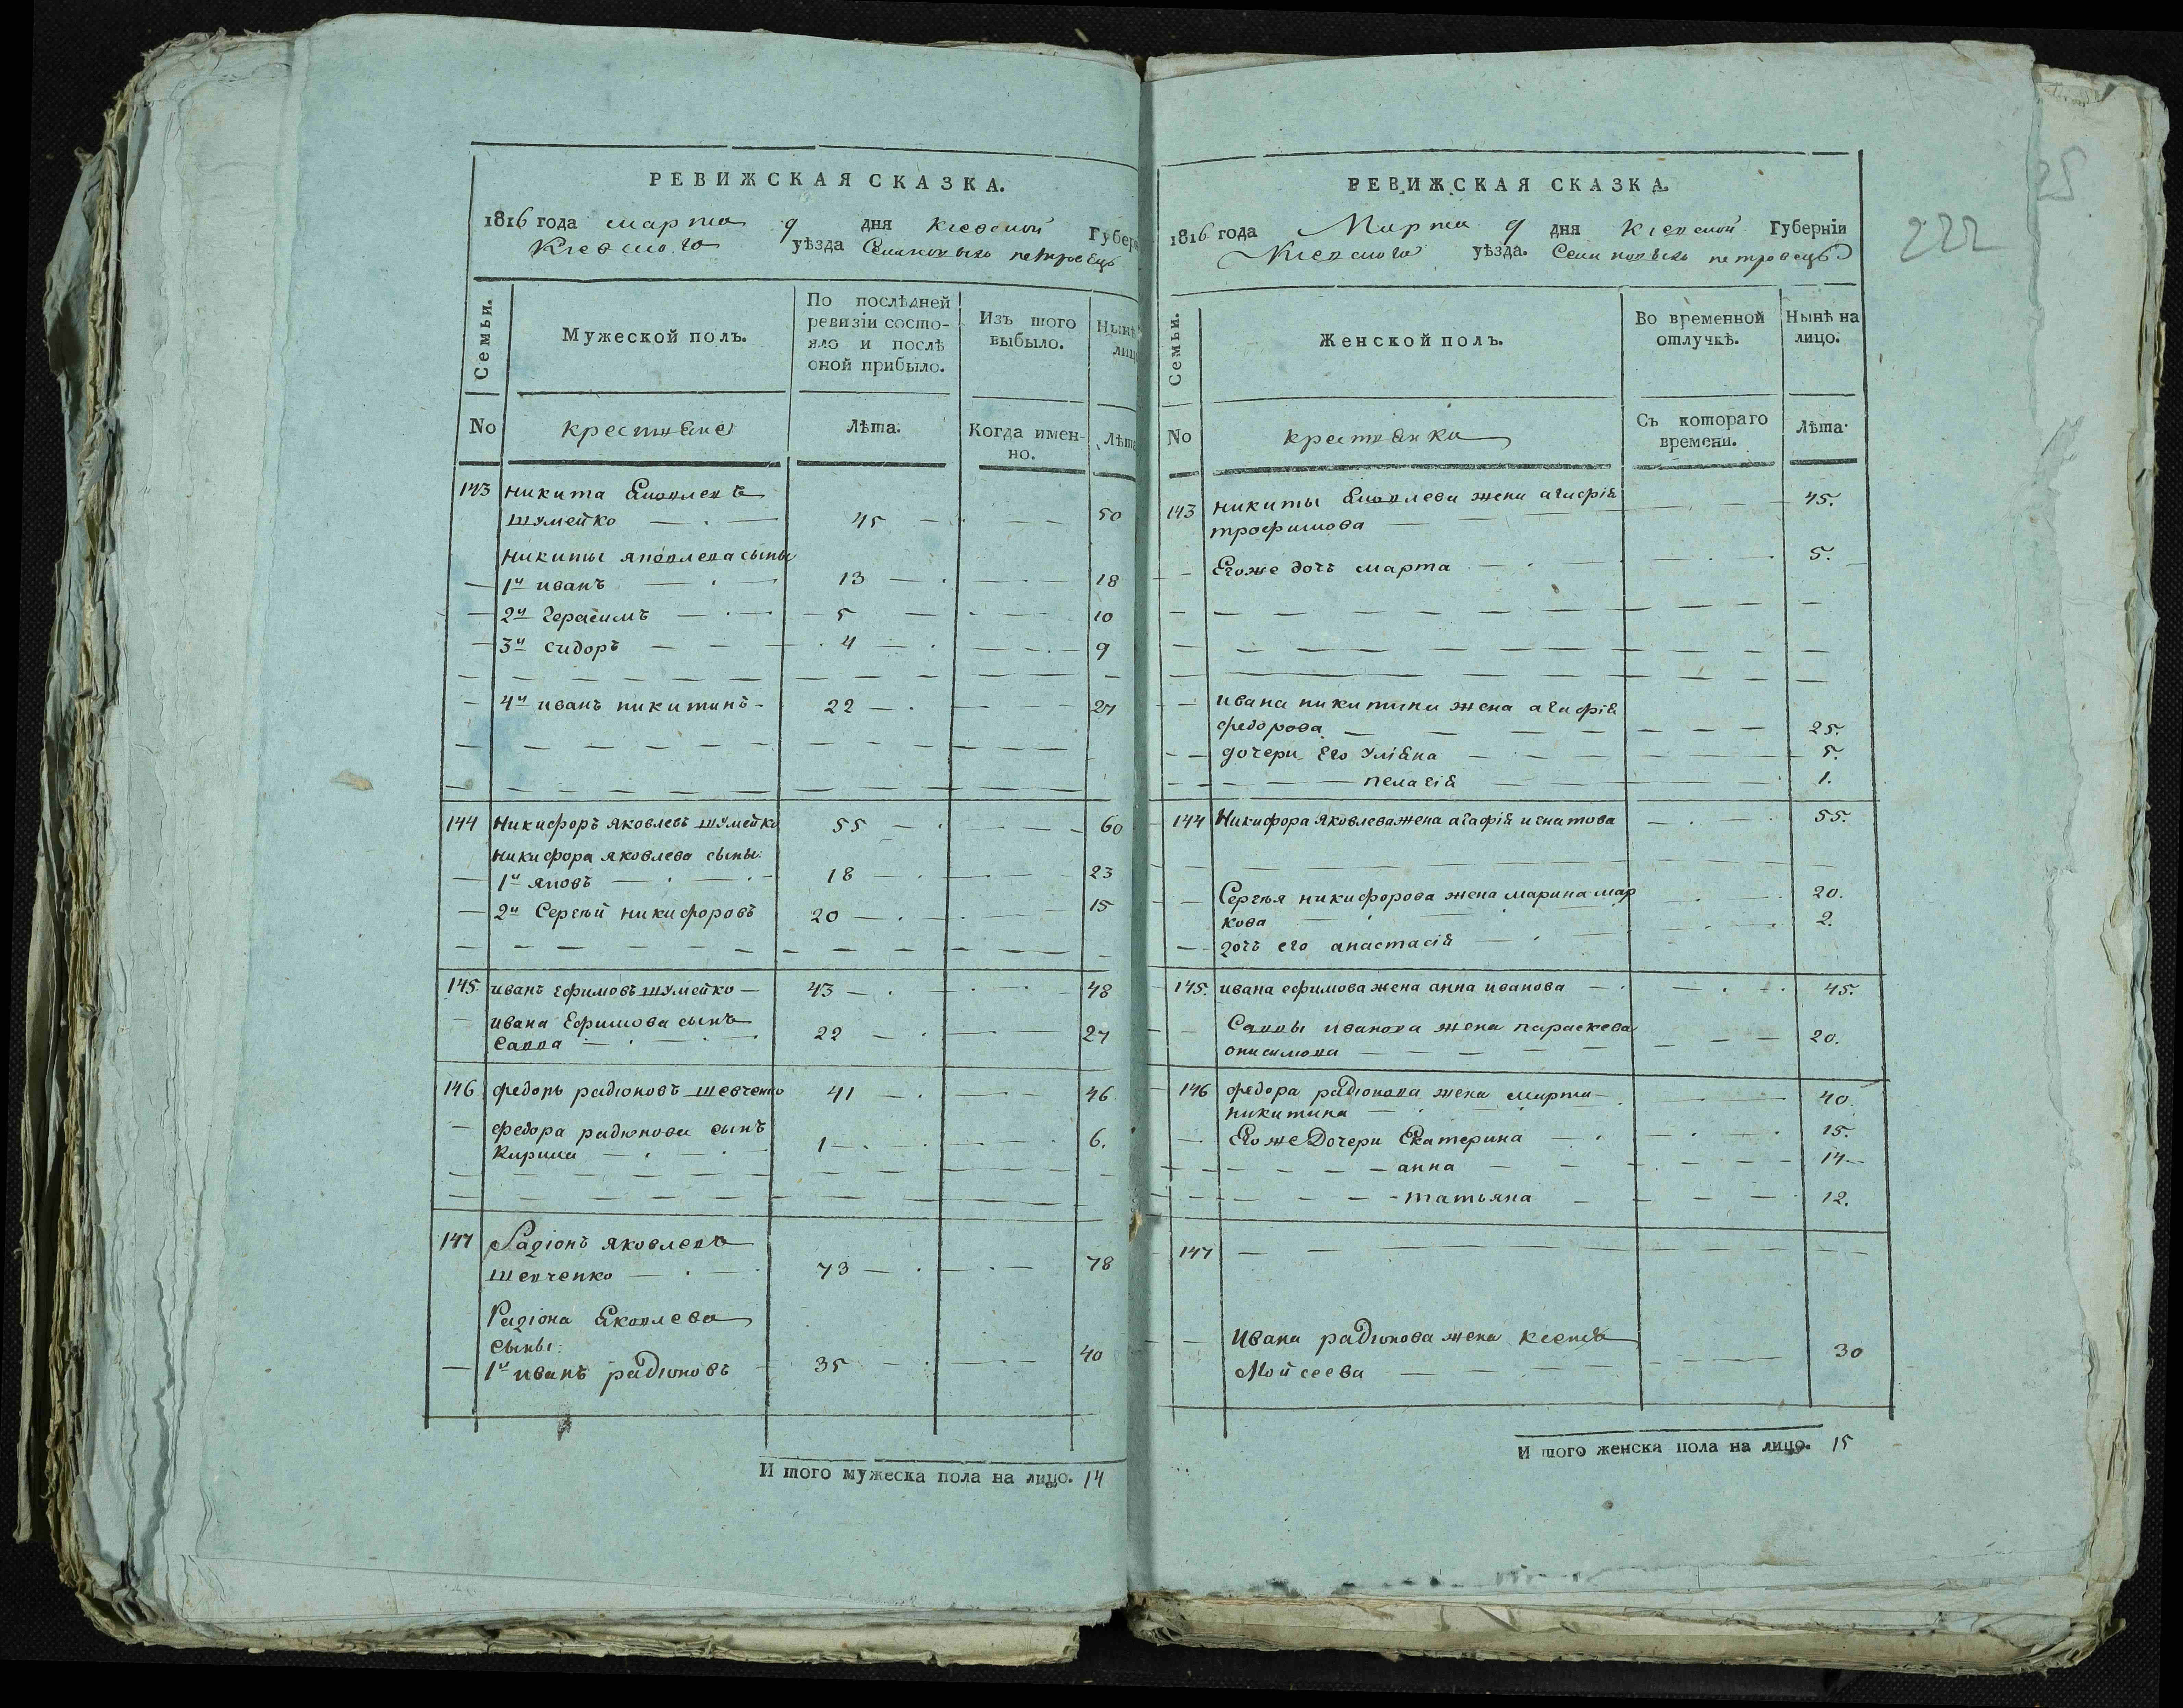 РЕВИЖСКАЯ СКАЗКА.
1816 года марта 9 дня Кіевской Губер
Кіевского уѣзда Села новыхъ петровецъ
Семьи.
Мужеской полъ.
По послѣдней
ревизіи состо-
яло и послѣ
оной прибыло.
Изъ того
выбыло.
Нынѣ
лицо
No
крестьяне
Лѣта.
Когда имен-
но.
Лѣта
143 никита Яковлевъ
шумейко — 45 — 50
никиты яковлева сыны
— 1й иванъ — 13 — 18
— 2й герасимъ — 5 — 10
— 3й сидоръ — 4 — 9
— 4й иванъ никитинъ - 22 — 27
144 Никифоръ яковлевъ шумейко 55 — 60
никифора яковлева сыны:
— 1й яковъ — 18 — 23
— 2й Сергѣй никифоровъ 20 — 15
145. иванъ ефимовъ шумейко — 43 — 48
— ивана Ефимова сынъ
савва — 22 — 27
146 федоръ радионовъ шевченко 41 — 46
— федора радионова сынъ
Кирила — 1 — 6.
147 Радіонъ яковлевъ
шевченко — 73 — 78
Радіона Яковлева
сыны:
— 1й иванъ радионовъ 35 — 40
И того мужеска пола на лицо. 14
РЕВИЖСКАЯ СКАЗКА.
1816 года Марта 9 дня Кіевской Губерніи
Кіевского уѣзда. Села новыхъ петровецъ
222
25
Семьи.
Женской полъ.
Во временной
отлучкѣ.
Нынѣ на
лицо.
No
крестьянки
Съ котораго
времени.
Лѣта.
143 никиты Яковлева жена агафія — 45.
трофимова —
— Егоже дочь марта — 5.
— ивана никитина жена агафія
федорова — 25.
— дочери Его Уліяна — 5.
— пелагія — 1.
144 Никифора Яковлева жена агафія игнатова — 55.
— Сергѣя никифорова жена марина мар — 20.
кова — 2.
— дочь его анастасія —
145. ивана ефимова жена анна иванова — 45.
— Саввы иванова жена параскева
онисимова — 20.
146 федора радионова жена марта — 40.
никитина —
— Его же Дочери Екатерина — 15.
— анна — 14 —
— татьяна — 12.
147 —
— Ивана радионова жена ксенія
Мойсеева — 30
И того женска пола на лицо. 15